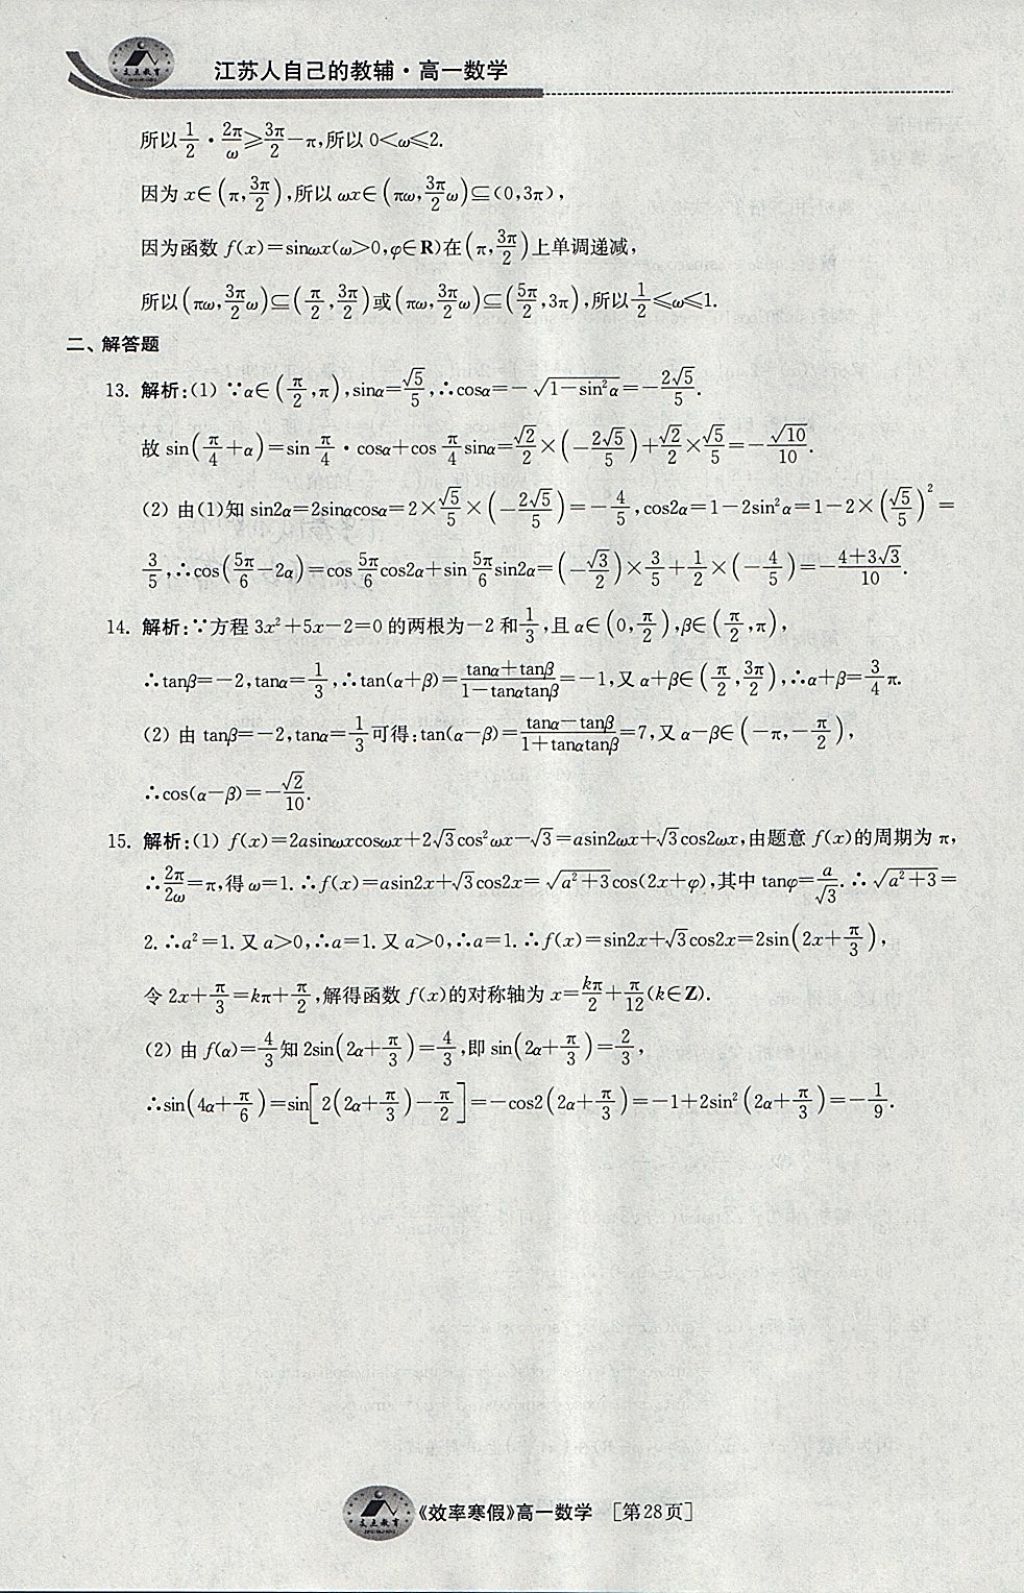 江苏人自己的教辅·高一数学
所以 1/2 · 2π/ω ≥ 3π/2 − π,所以 0<ω≤2.
因为 x∈(π, 3π/2),所以 ωx∈(πω, 3π/2 ω)⊆(0,3π),
因为函数 f(x)=sinωx(ω>0,φ∈R)在(π, 3π/2)上单调递减,
所以(πω, 3π/2 ω)⊆(π/2, 3π/2)或(πω, 3π/2 ω)⊆(5π/2, 3π),所以 1/2≤ω≤1.
二、解答题
13. 解析:(1) ∵α∈(π/2, π),sinα=√5/5,∴cosα=−√(1−sin²α)=−2√5/5.
故 sin(π/4+α)=sin π/4 · cosα+cos π/4 sinα=√2/2×(−2√5/5)+√2/2×√5/5=−√10/10.
(2) 由(1)知 sin2α=2sinαcosα=2×√5/5×(−2√5/5)=−4/5,cos2α=1−2sin²α=1−2×(√5/5)²=
3/5,∴cos(5π/6−2α)=cos 5π/6 cos2α+sin 5π/6 sin2α=(−√3/2)×3/5+1/2×(−4/5)=−(4+3√3)/10.
14. 解析:∵方程 3x²+5x−2=0 的两根为−2 和 1/3,且 α∈(0, π/2),β∈(π/2, π),
∴tanβ=−2,tanα=1/3,∴tan(α+β)=(tanα+tanβ)/(1−tanαtanβ)=−1,又 α+β∈(π/2, 3π/2),∴α+β=3/4 π.
(2) 由 tanβ=−2,tanα=1/3 可得:tan(α−β)=(tanα−tanβ)/(1+tanαtanβ)=7,又 α−β∈(−π,−π/2),
∴cos(α−β)=−√2/10.
15. 解析:(1) f(x)=2asinωxcosωx+2√3cos²ωx−√3=asin2ωx+√3cos2ωx,由题意 f(x)的周期为 π,
∴2π/2ω=π,得 ω=1.∴f(x)=asin2x+√3cos2x=√(a²+3)cos(2x+φ),其中 tanφ=a/√3.∴√(a²+3)=
2.∴a²=1.又 a>0,∴a=1.又 a>0,∴a=1.∴f(x)=sin2x+√3cos2x=2sin(2x+π/3),
令 2x+π/3=kπ+π/2,解得函数 f(x)的对称轴为 x=kπ/2+π/12(k∈Z).
(2) 由 f(α)=4/3 知 2sin(2α+π/3)=4/3,即 sin(2α+π/3)=2/3,
∴sin(4α+π/6)=sin[2(2α+π/3)−π/2]=−cos2(2α+π/3)=−1+2sin²(2α+π/3)=−1/9.
《效率寒假》高一数学 [第28页]